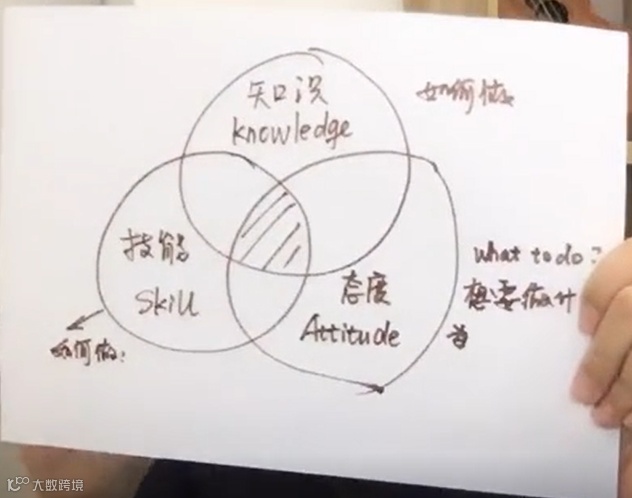 知识
knowledge
如何做
技能
Skill
如何做:
态度
Attitude
what to do?
想要做什
大数跨境